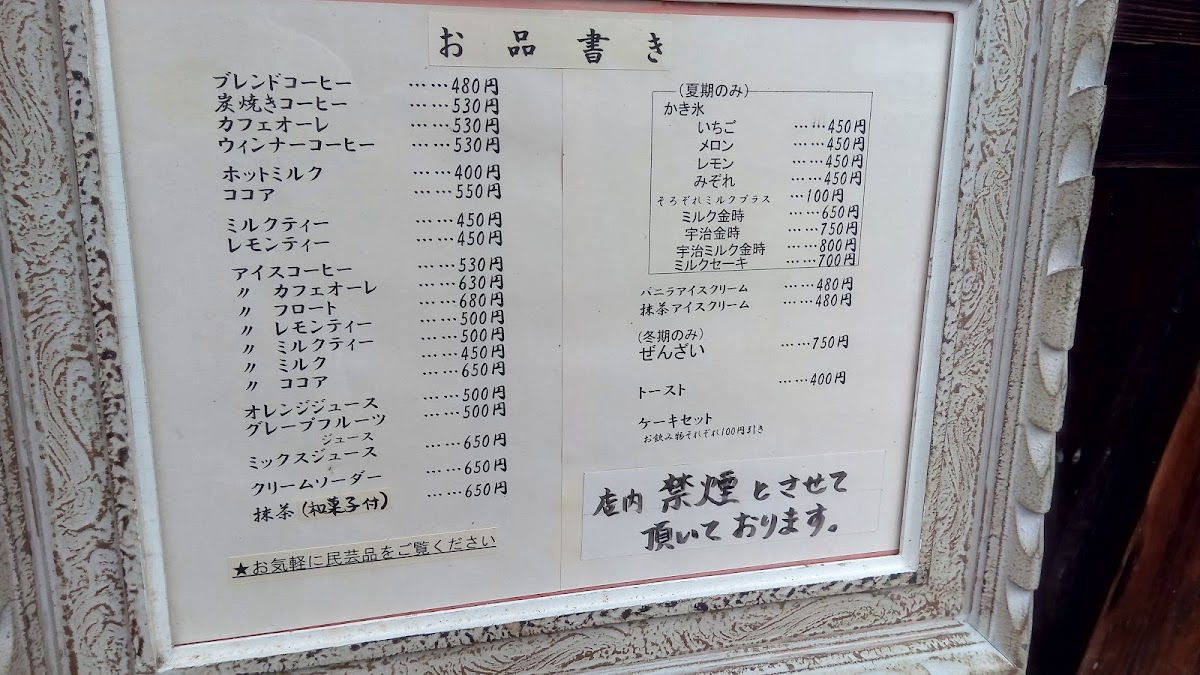 お品書き
ブレンドコーヒー ……480円
炭焼きコーヒー ……530円
カフェオーレ ……530円
ウィンナーコーヒー ……530円
ホットミルク ……400円
ココア ……550円
ミルクティー ……450円
レモンティー ……450円
アイスコーヒー ……530円
〃 カフェオーレ ……630円
〃 フロート ……680円
〃 レモンティー ……500円
〃 ミルクティー ……500円
〃 ミルク ……450円
〃 ココア ……650円
オレンジジュース ……500円
グレープフルーツ ……500円
ジュース
ミックスジュース ……650円
クリームソーダー ……650円
抹茶(和菓子付) ……650円
★お気軽に民芸品をご覧ください
(夏期のみ)
かき氷
いちご ……450円
メロン ……450円
レモン ……450円
みぞれ ……450円
そろぞれミルクプラス …100円
ミルク金時 ……650円
宇治金時 ……750円
宇治ミルク金時 ……800円
ミルクセーキ ……700円
バニラアイスクリーム ……480円
抹茶アイスクリーム ……480円
(冬期のみ)
ぜんざい ……750円
トースト ……400円
ケーキセット
お飲み物それぞれ100円引き
店内禁煙とさせて
頂いております。